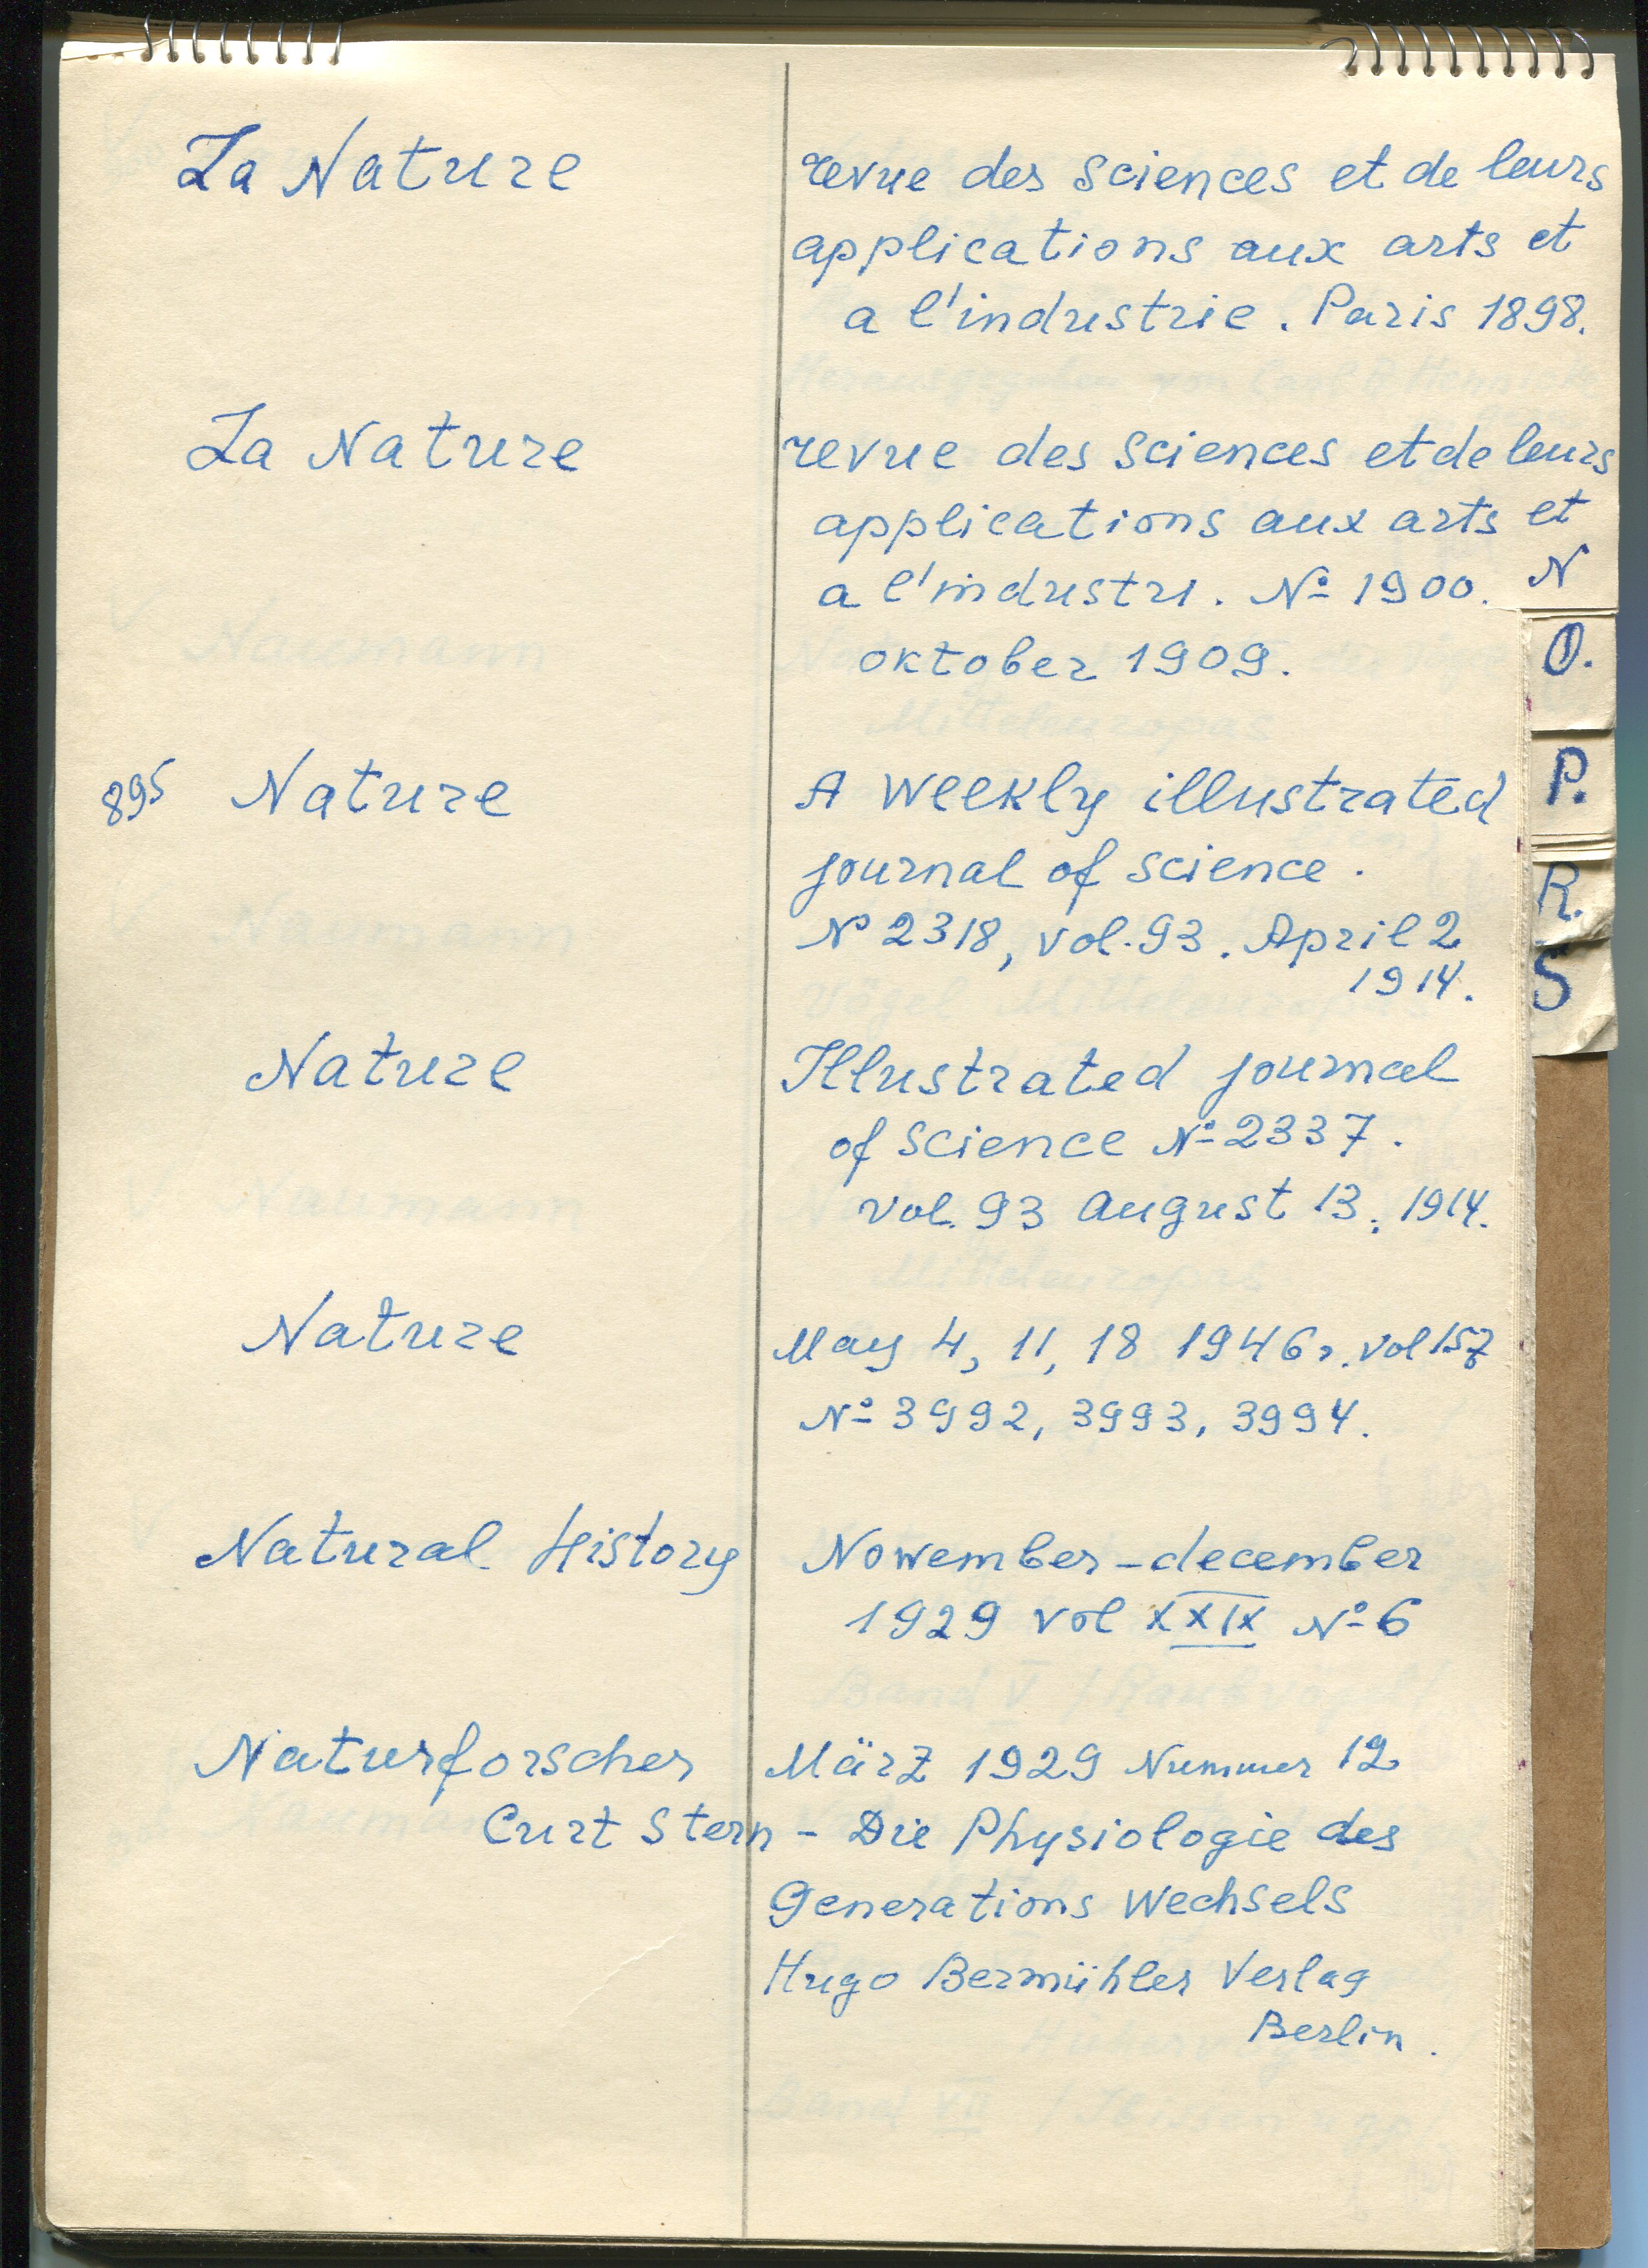 La Nature revue des sciences et de leurs
applications aux arts et
a l'industrie. Paris 1898.
La Nature revue des sciences et de leurs
applications aux arts et
a l'industri. № 1900.
oktober 1909.
895 Nature A weekly illustrated
journal of science.
№ 2318, vol. 93. April 2
1914.
Nature Illustrated journal
of science № 2337.
vol. 93 august 13. 1914.
Nature May 4, 11, 18 1946 г. vol 157
№ 3992, 3993, 3994.
Natural History Nowember-december
1929 vol XXIX № 6
Naturforscher März 1929 Nummer 12
Curt Stern - Die Physiologie des
Generations Wechsels
Hugo Bermühler Verlag
Berlin.
N
O.
P.
R.
S